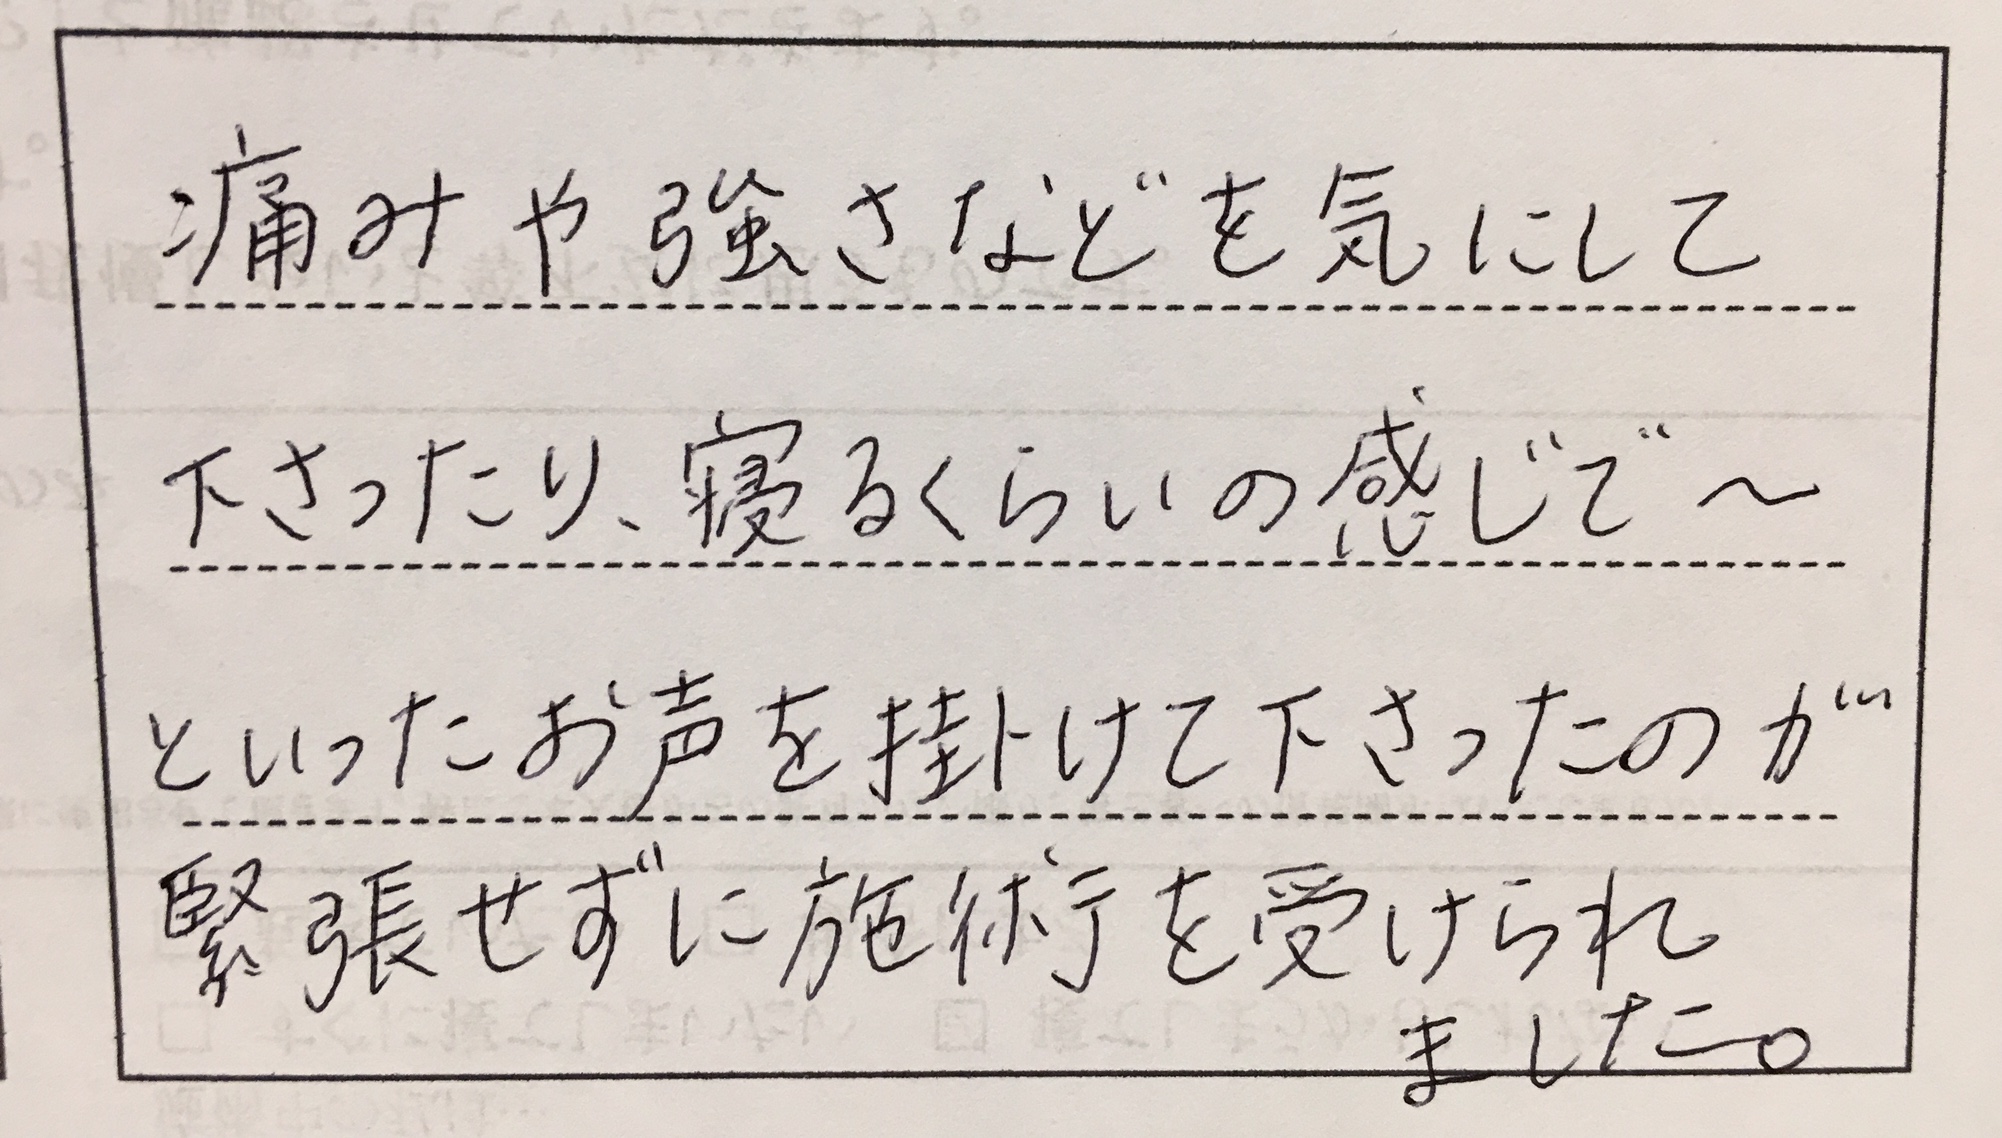 痛みや強さなどを気にして
下さったり、寝るくらいの感じで～
といったお声を掛けて下さったのが
緊張せずに施術を受けられ
ました。